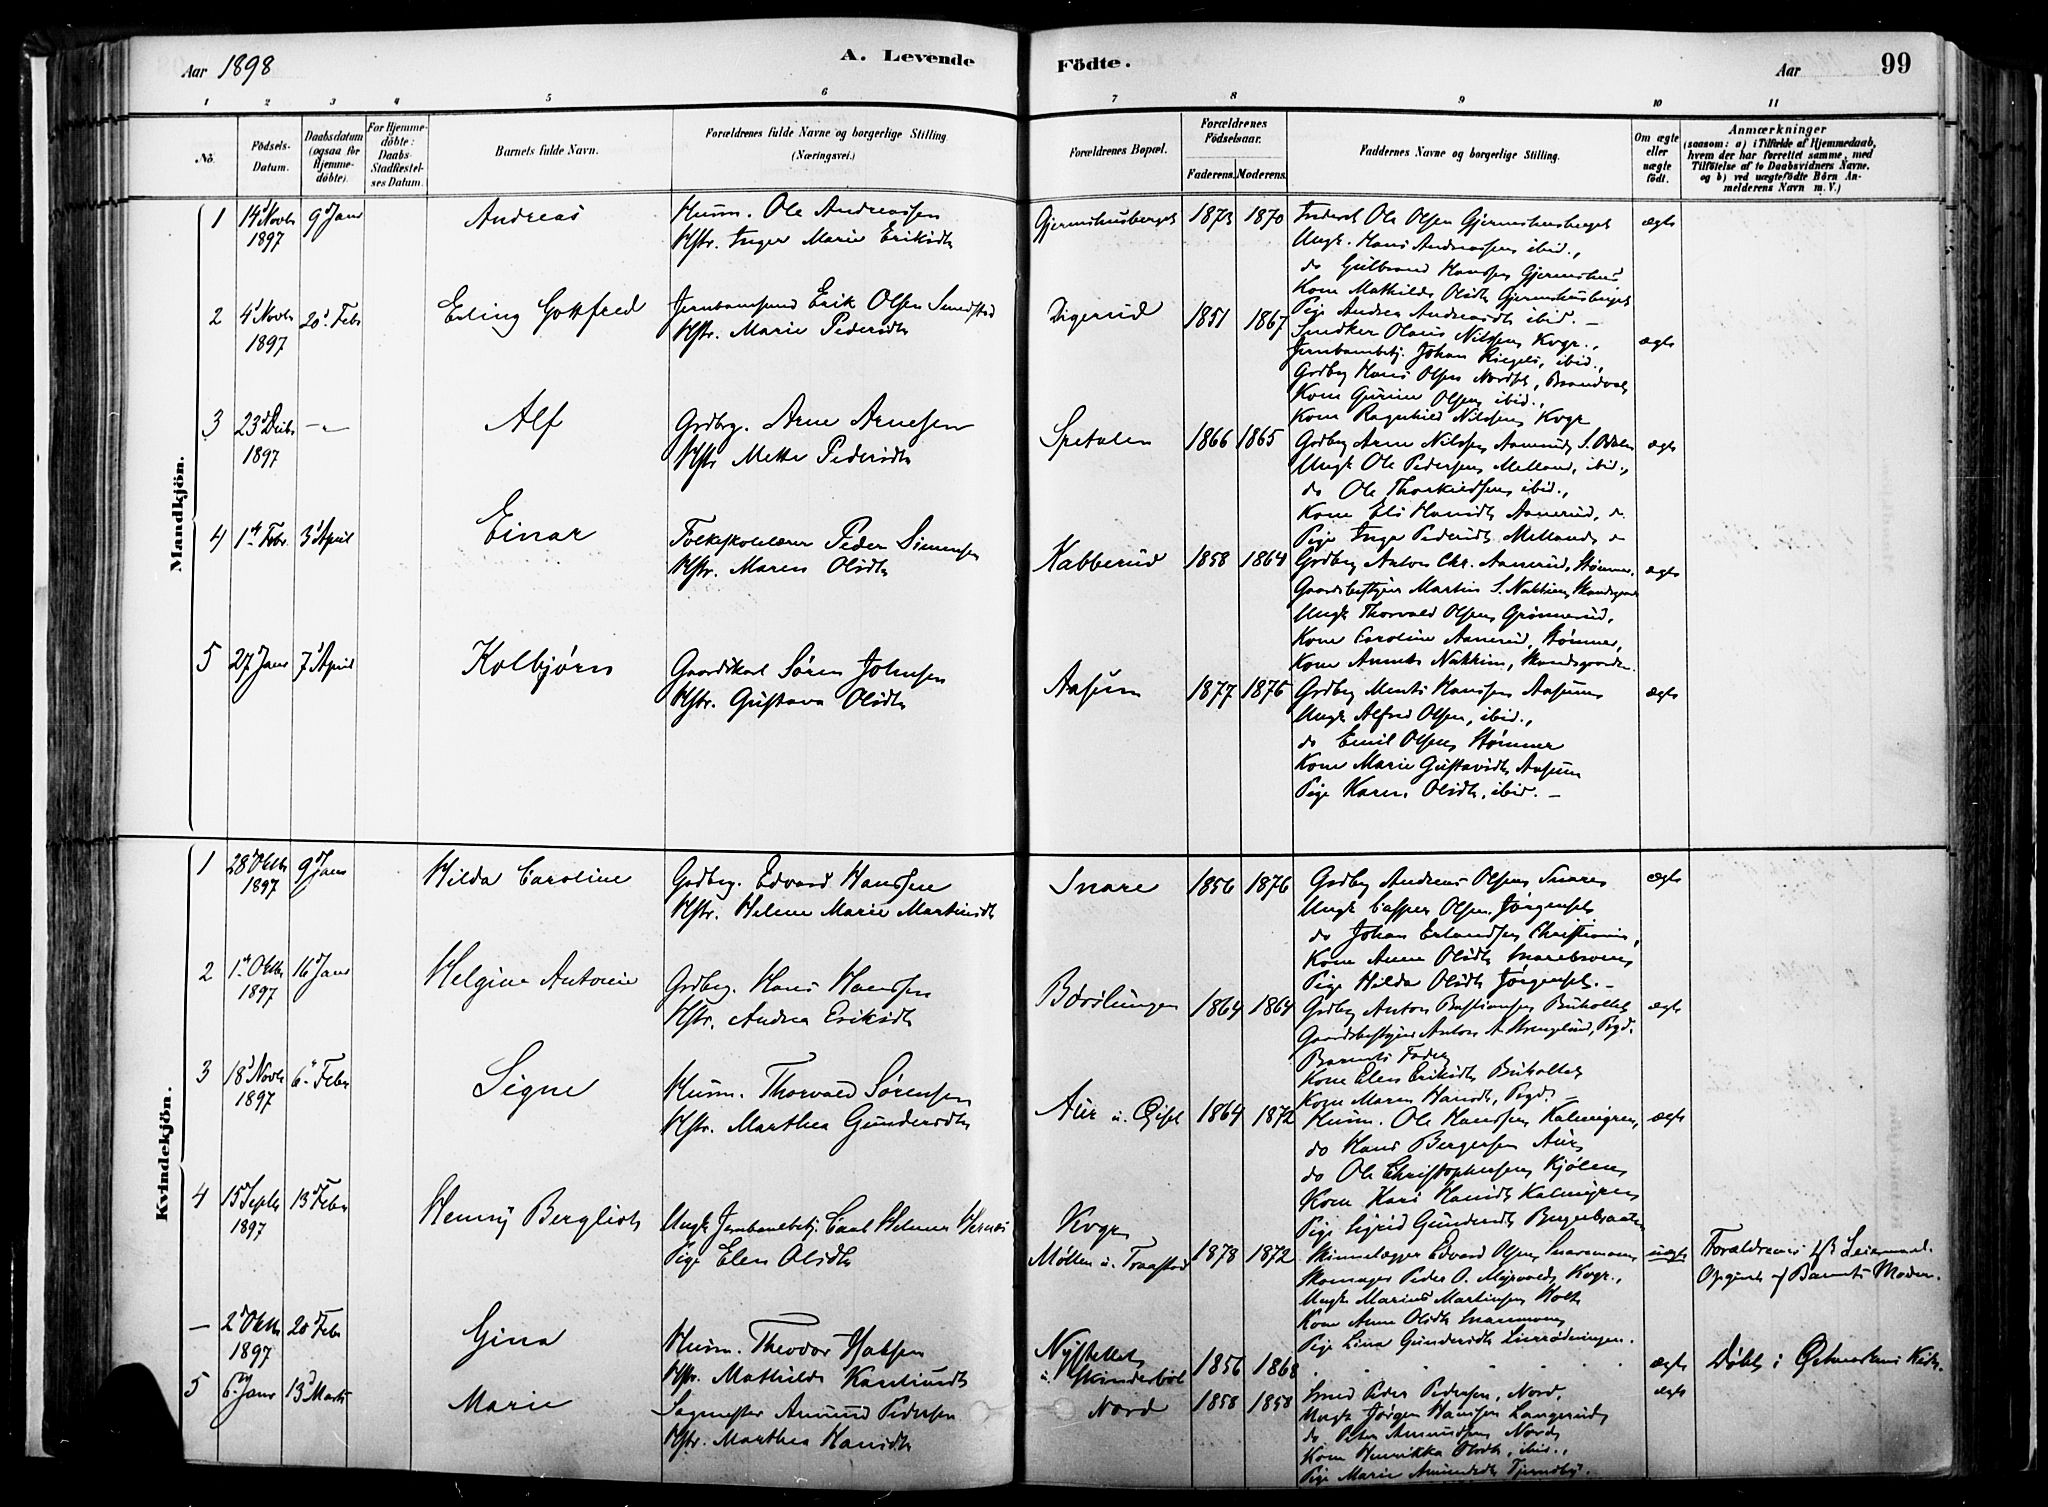 Aar 1898
A. Levende
Födte.
Aar
99
1 2 3 4 5 6 7 8 9 10 11
No.
Födsels-Datum.
Daabsdatum (ogsaa for Hjemme-döbte).
For Hjemme-döbte: Daabs-Stadfæstel-ses Datum.
Barnets fulde Navn.
Forældrenes fulde Navne og borgerlige Stilling (Næringsvei.)
Forældrenes Bopæl.
Forældrenes Födselsaar.
Faderens. Moderens.
Faddernes Navne og borgerlige Stilling.
Om ægte eller uægte födt.
Anmærkninger
(saasom: a) i Tilfælde af Hjemmedaab,
hvem der har forrettet samme, med
Tilföielse af to Daabsvidners Navne,
og b) ved uægtefödte Börn An-
melderens Navn m. V.)
Mandkjön.
1 14d Novbr 1897 9d Janr Andreas
Husm. Ole Andreassen
Hstr. Inger Marie Eriksdtr
Gjermshusberget 1873 1870
Inderst Ole Olsen Gjermshusberget
Ungk. Hans Andreassen ibid.,
do Gulbrand Hanssen Gjermshus
Kone Mathilde Olsdtr Gjermshusberget
Pige Andrea Andreasdtr ibid. –
ægte
2 4d Novbr 1897 20d Febr Erling Gottfred
Jernbanemand Erik Olsen Sundstad
Hstr. Marie Pedersdtr
Digerud 1851 1867
Snedker Olaus Nilssen Kvgr.,
Jernbanebetj. Johan Riegels, ibid.,
Grdbrg Hans Olsen Nordset, Brandval
Kone Gurine Olsen ibid.,
Kone Ragnhild Nilssen Kvgr
ægte
3 23d Decbr 1897 – " – Alf
Grdbrg. Arne Arnesen
Hstr Mette Pedersdtr
Spetalen 1866 1865
Grdbrg Arne Nilssen Aamrud, S. Odalen
Ungk Ole Pedersen Melland, ibid.,
do Ole Thorkildsen ibid.,
Kone Eli Hansdtr Aanerud, "
Pige Inge Pedersdtr Melland "
ægte
4 1ste Febr. 3d April Einar
Folkeskolelærer Peder Simensen
Hstr. Maren Olsdtr
Kabberud 1858 1864
Grdbrg Anton Chr. Aanerud, Strømmer.
Gaardsbestyrer Martin S. Nakkim, Skandsgaarden
Ungk Thorvald Olsen Grønnerud,
Kone Caroline Aanerud, Strømmer,
Kone Annette Nakkim, Skandsgaarden.
ægte
5 27d Janr 7d April Kolbjørn
Gaardskarl Søren Johnsen
Hstr. Gustava Olsdtr
Aasum 1877 1875
Grdbrg Ments Hanssen Aasum
Ungk Alfred Olsen, ibid.,
do Emil Olsen Strømmer
Kone Marie Gustavsdtr Aasum
Pige Karen Olsdtr, ibid. –
ægte
Kvindekjön.
1 28d Oktbr 1897 9d Janr Hilda Caroline
Grdbrg. Edvard Hanssen
Hstr. Helene Marie Martinsdtr
Snare 1856 1876
Grdbrg Andreas Olsen Snare
Ungk Casper Olsen Jørgenset
do Johan Erlandsen Christiania,
Kone Anne Olsdtr
Pige Hilda Olsdtr Jørgenset. –
ægte
2 1ste Oktbr 1897 16d Janr Helgine Antonie
Grdbrg. Hans Hanssen
Hstr. Andrea Eriksdtr
Børslungen 1864 1864
Grdbrg Anton Bastiansen Buholtet
Gaardsbestyrer Anton A. Strengelsrud, Pigd.
Barnets Fader
Kone Elen Eriksdtr Buholtet
Kone Maren Hansdtr, Pigd. –
ægte
3 18d Novbr 1897 6te Febr Signe
Husm. Thorvald Sørensen
Hstr. Marthea Gundersdtr
Aur u. Gisel 1864 1872
Husm. Ole Hanssen Kalmigren,
do Hans Bergersen Aur
do Ole Christophersen Kjølen
Kone Kari Hansdtr Kalmigren
Pige Sigrid Gundersdtr
ægte
4 15d Septbr 1897 13d Febr Henny Bergliot
Ungk Jernbanebetj. Carl Helmer Hernæs
Pige Elen Olsdtr
Kvgr
Møllen u. Traastad 1878 1872
Skindtager Edvard Olsen Snaremoen
Skomager Peder O. Myrvold, Kvgr.,
Ungk Marius Martinsen Holt
Kone Anne Olsdtr Snaremoen
Pige Lina Gundersdtr Lierrødningen.
uægte
Forældrenes 1ste Leiermaal.
Opgivet af Barnets Moder.
– 2d Oktbr 1897 20d Febr Gina
Husm. Theodor
Hstr. Mathilde
Nystellet u. Skinderbøl 1856 1868
" " " " "
ægte
Døbt i Østmarkens Kirke.
5 6te Janr 13d Marts Marie
Sagmester Amund Pedersen
Hstr. Marthea Hansdtr
Nord 1858 1858
Smed Peder Pedersen, Nord,
Ungk Jørgen Hanssen Langerud
do Peter Amundsen Nord
Kone Henrikka Olsdtr, ibid.,
Pige Marie Amundsdtr Tjernsby.
ægte